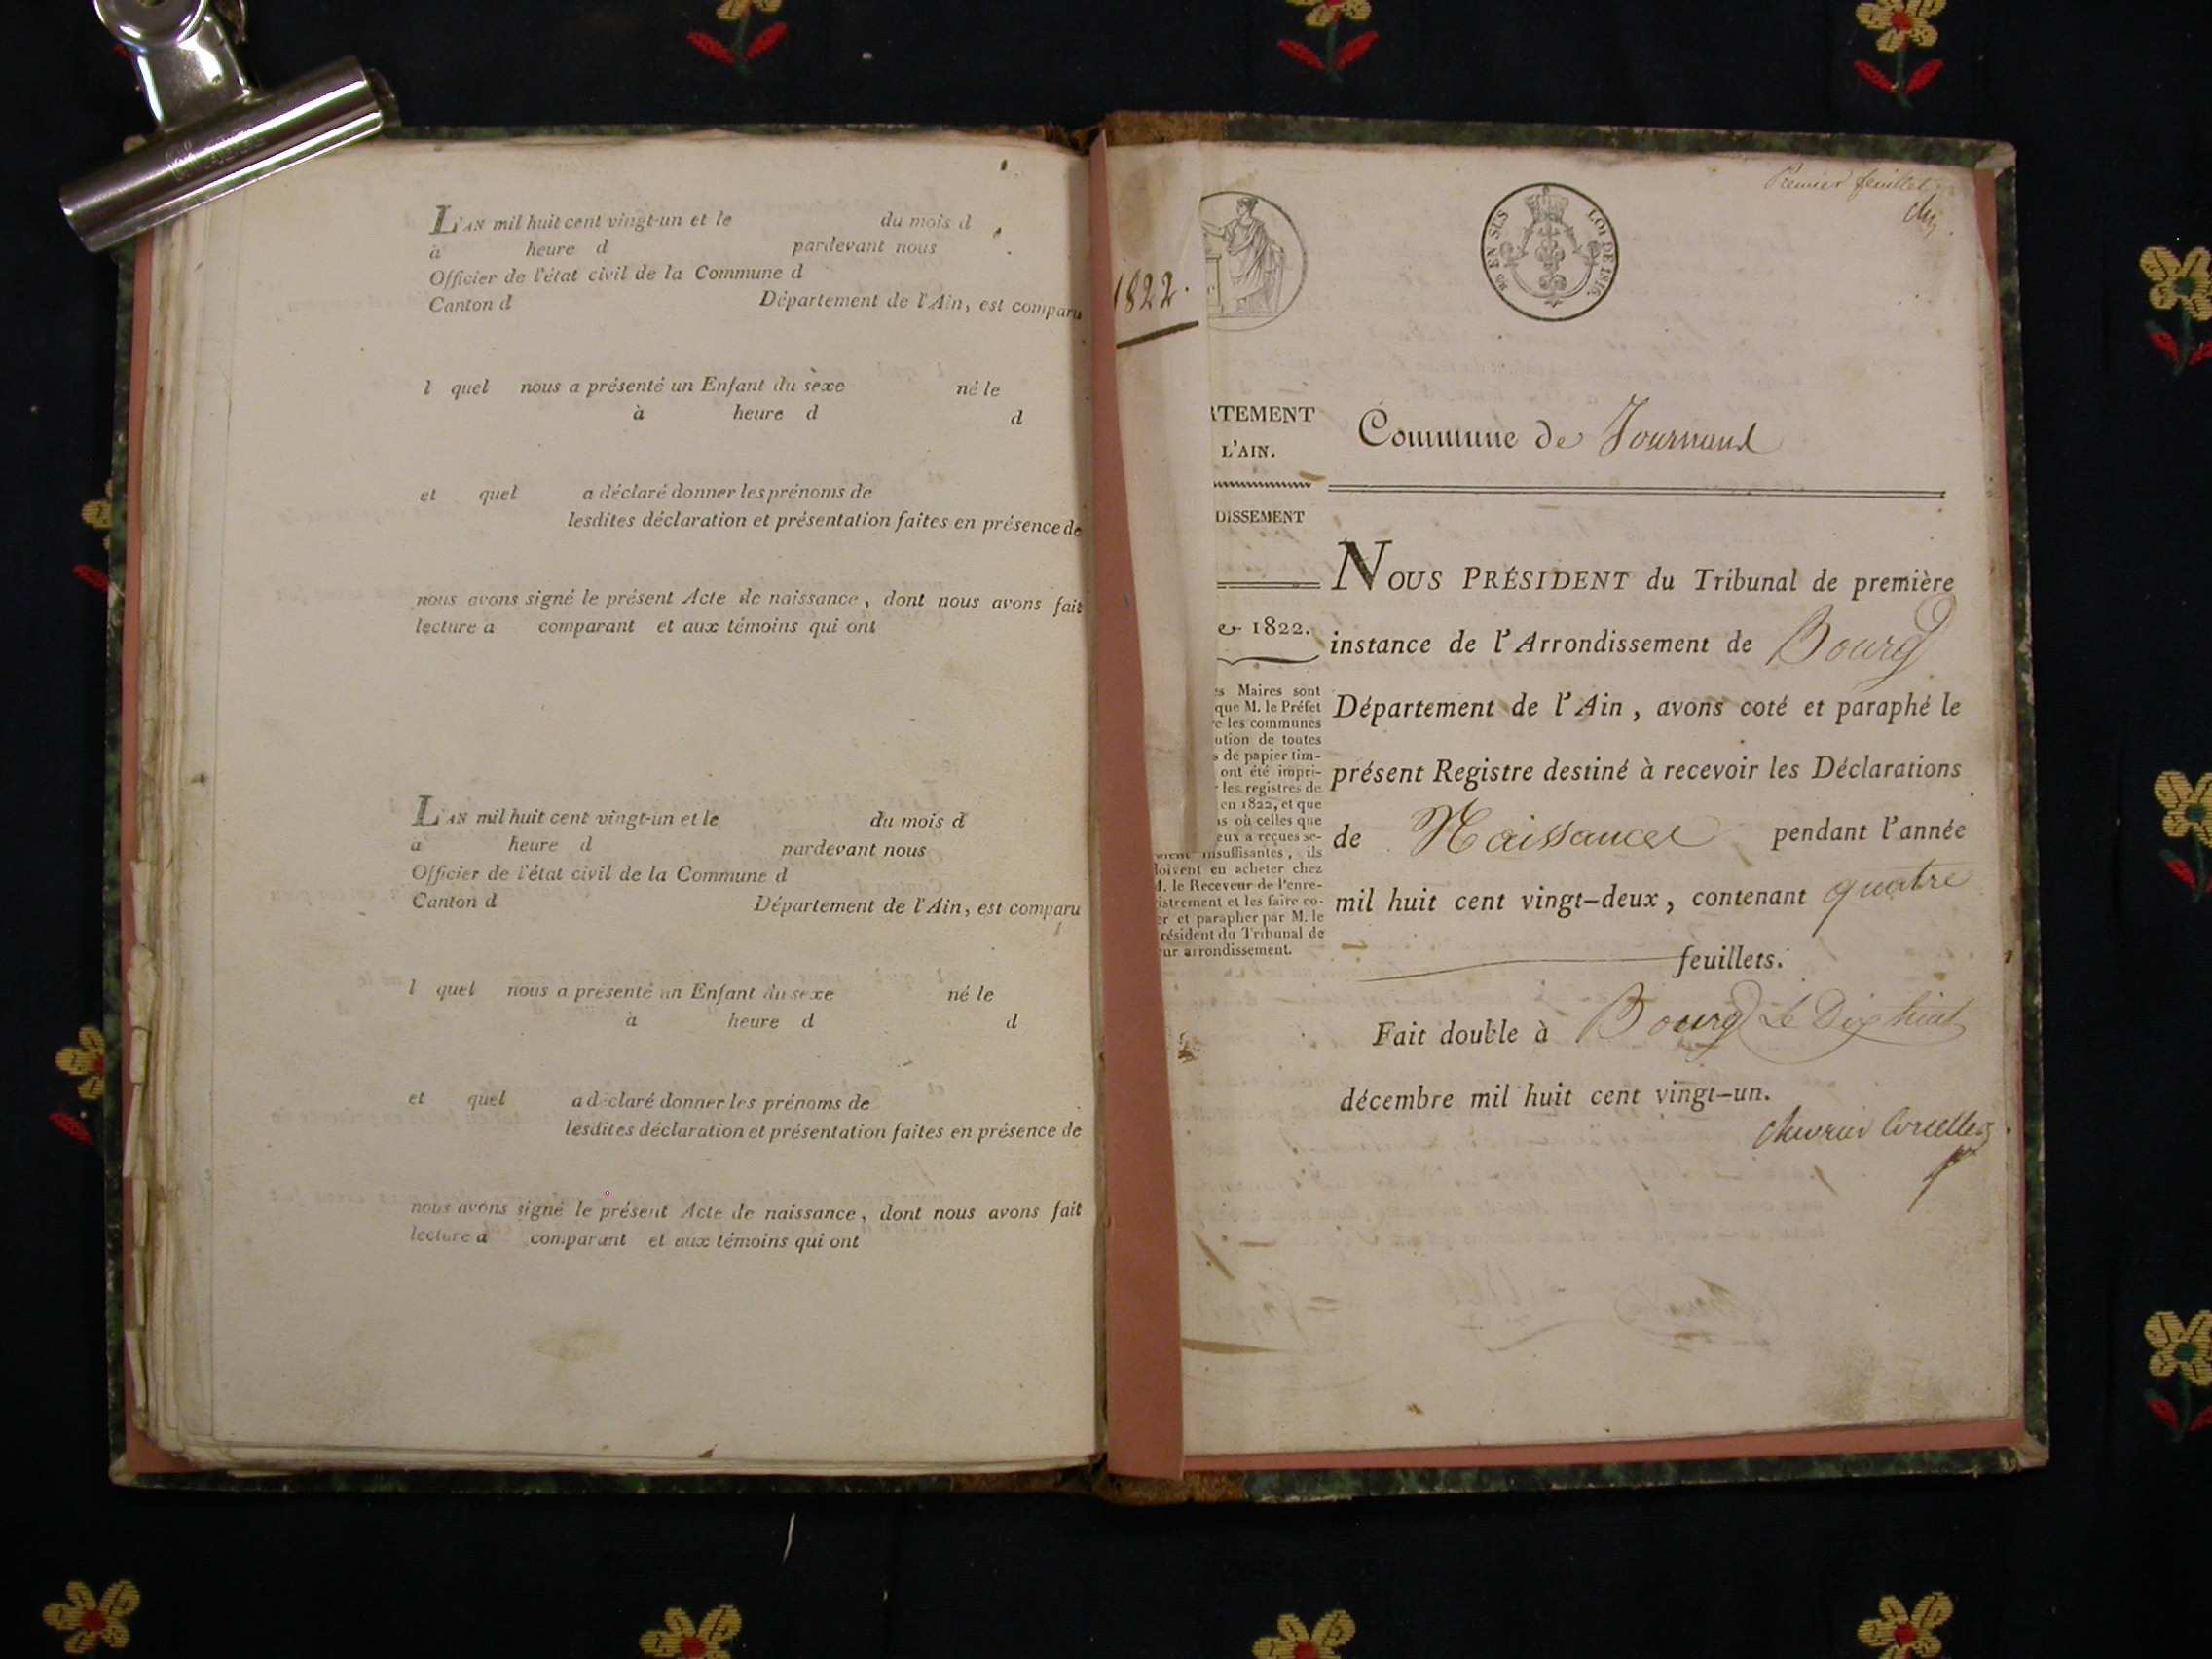 L'AN mil huit cent vingt-un et le du mois d
à heure d pardevant nous
Officier de l'état civil de la Commune d
Canton d Département de l'Ain, est comparu
l quel nous a présenté un Enfant du sèxe né le
à heure d d
et quel a déclaré donner les prénoms de
lesdites déclaration et présentation faites en présence de
nous avons signé le présent Acte de naissance, dont nous avons fait
lecture a comparant et aux témoins qui ont
L'AN mil huit cent vingt-un et le du mois d
à heure d pardevant nous
Officier de l'état civil de la Commune d
Canton d Département de l'Ain, est comparu
l quel nous a présenté un Enfant du sexe né le
à heure d d
et quel a déclaré donner les prénoms de
lesdites déclaration et présentation faites en présence de
nous avons signé le présent Acte de naissance, dont nous avons fait
lecture a comparant et aux témoins qui ont
1822.
Premier feuillet
EN SUS LOI DE 1816.
RTEMENT
L'AIN.
DISSEMENT
1822.
es Maires sont
que M. le Préfet
re les communes
ution de toutes
s de papier tim-
ont été impri-
les registres de
en 1822, et que
as où celles que
eux a reçues se-
insuffisantes, ils
doivent en acheter chez
M. le Receveur de l'enre-
istrement et les faire co-
er et parapher par M. le
résident du Tribunal de
ur arrondissement.
Commune de Journand
NOUS PRÉSIDENT du Tribunal de première
instance de l'Arrondissement de Bourg
Département de l'Ain, avons coté et paraphé le
présent Registre destiné à recevoir les Déclarations
de Naissances pendant l'année
mil huit cent vingt-deux, contenant quatre
feuillets.
Fait double à Bourg Le Dix huit
décembre mil huit cent vingt-un.